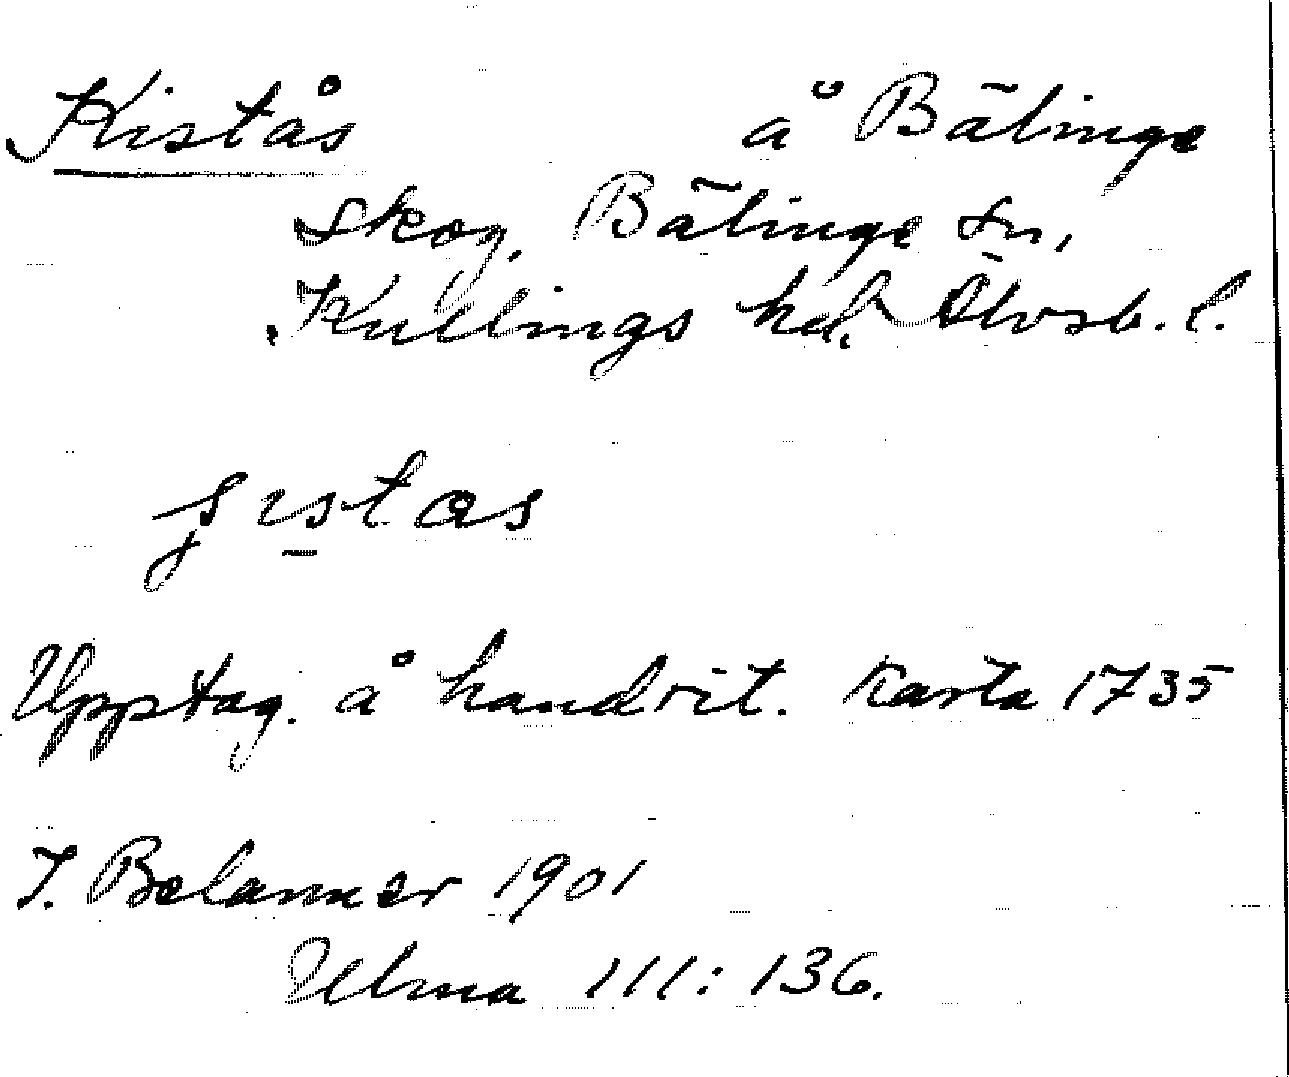 Kistås å Bälinge
skog, Bälinge sn,
Kullings hd. Älvsb. l.
Upptag. å handrit. karta 1735
J. Belanner 1901
Ulma 111: 136.